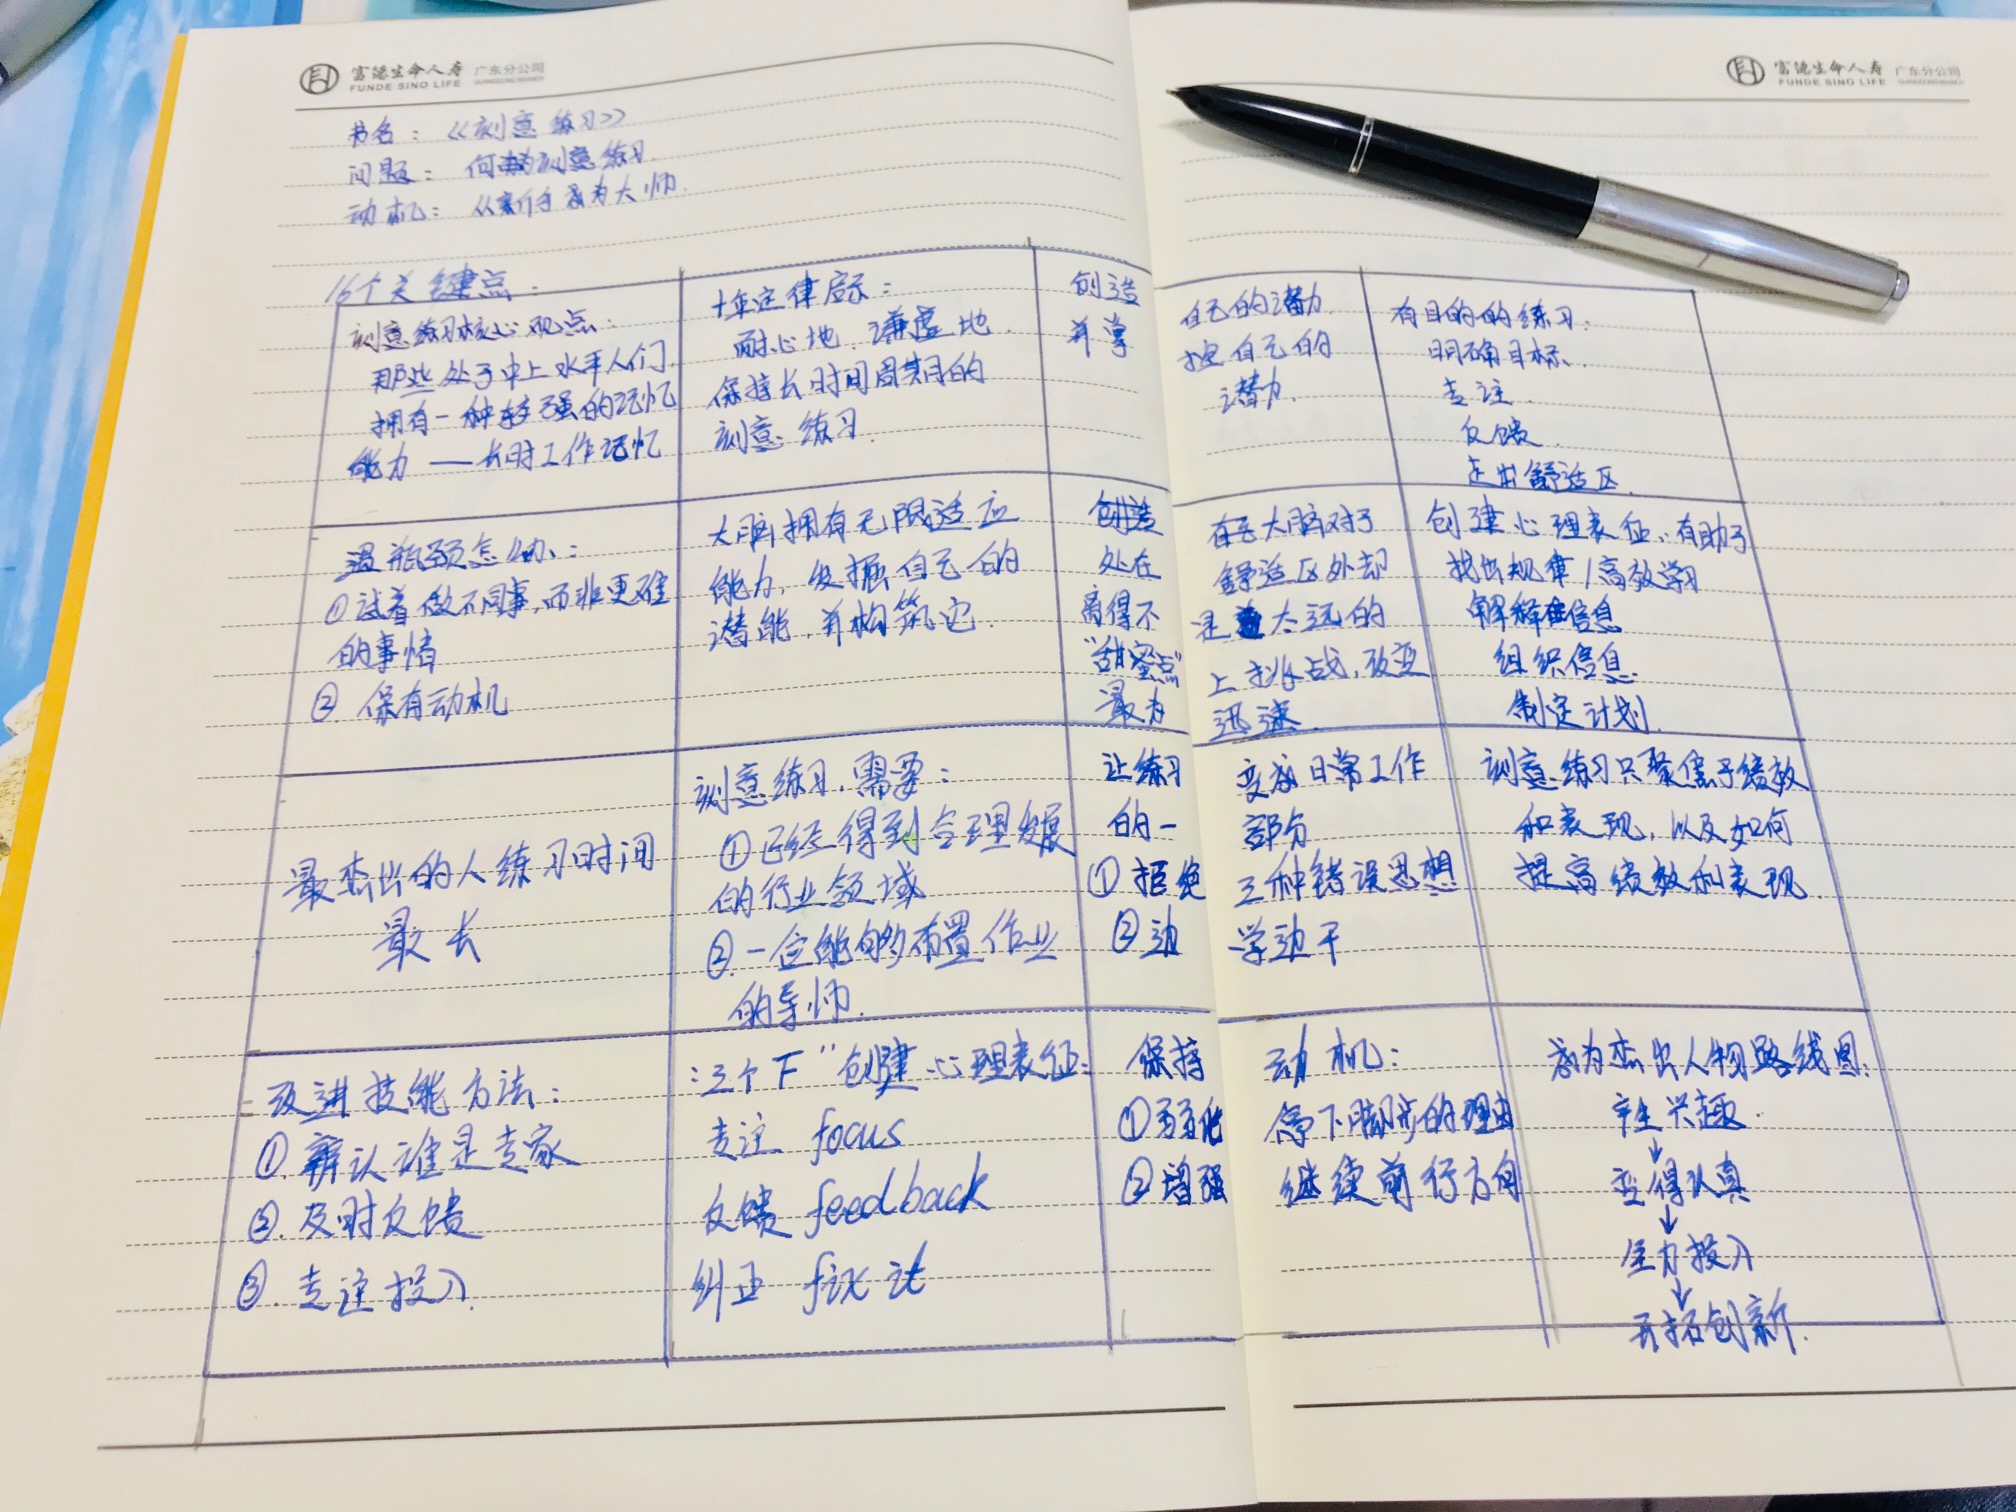 富德生命人寿 广东分公司
FUNDE SINO LIFE GUANGDONG BRANCH
富德生命人寿 广东分公司
FUNDE SINO LIFE GUANGDONG BRANCH
书名：《刻意练习》
问题：何为刻意练习
动机：从新手成为大师.
16个关键点：
刻意练习核心观点：
那些处于中上水平人们.
拥有一种较强的记忆
能力——长时工作记忆
定律启示：
耐心地.谦虚地.
保持长时间周期的
刻意练习.
创造自己的潜力
并掌控自己的
潜力.
有目的的练习：
明确目标.
专注.
反馈.
走出舒适区.
遇瓶颈怎么办：
①试着做不同事,而非更难
的事情
②.保有动机
大脑拥有无限适应
能力,发掘自己的
潜能,并构筑它.
创造 大脑对于
处在舒适区外却
离得不是太远的
“甜蜜点”上挑战,改变
最为迅速.
创建心理表征.有助于
找出规律/高效学习
解释信息
组织信息
制定计划.
最杰出的人练习时间
最长
刻意练习.需要：
①已经得到合理发展
的行业领域
②.一位能够布置作业
的导师.
让练习变成日常工作
的一部分
①拒绝三种错误思想
②边学边干
刻意练习只聚焦于绩效
和表现,以及如何
提高绩效和表现.
改进技能方法：
①.辨认谁是专家
②.及时反馈
③.专注投入.
三个“F”创建心理表征：
专注 focus
反馈 feedback
纠正 fix it
保持动机：
①弱化停下脚步的理由
②增强继续前行方向
成为杰出人物路线图：
产生兴趣.
↓
变得认真
↓
全力投入
↓
开拓创新.